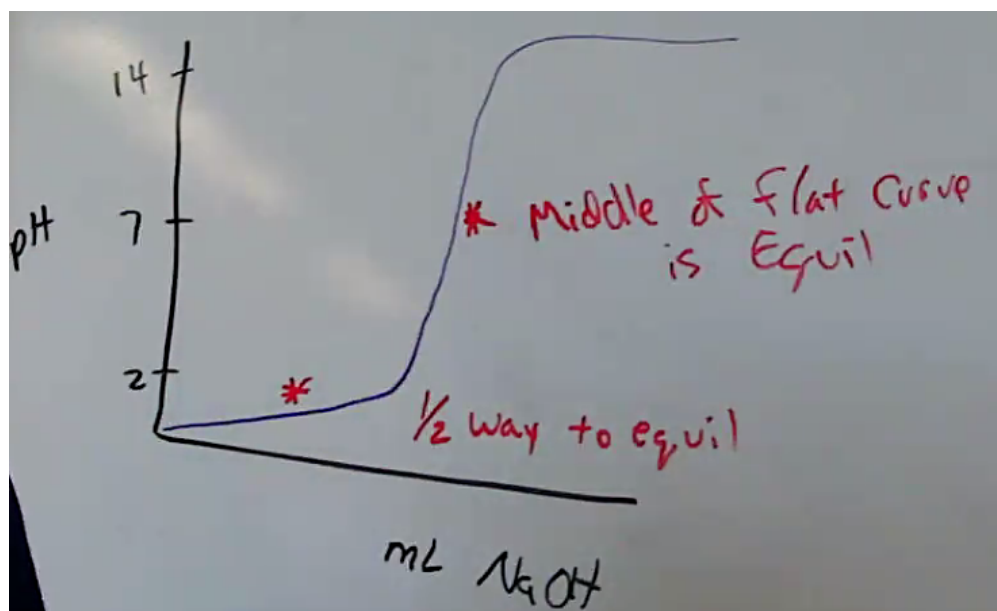 14
pH
7
* Middle of flat curve
is Equil
2
*
1/2 way to equil
mL NaOH